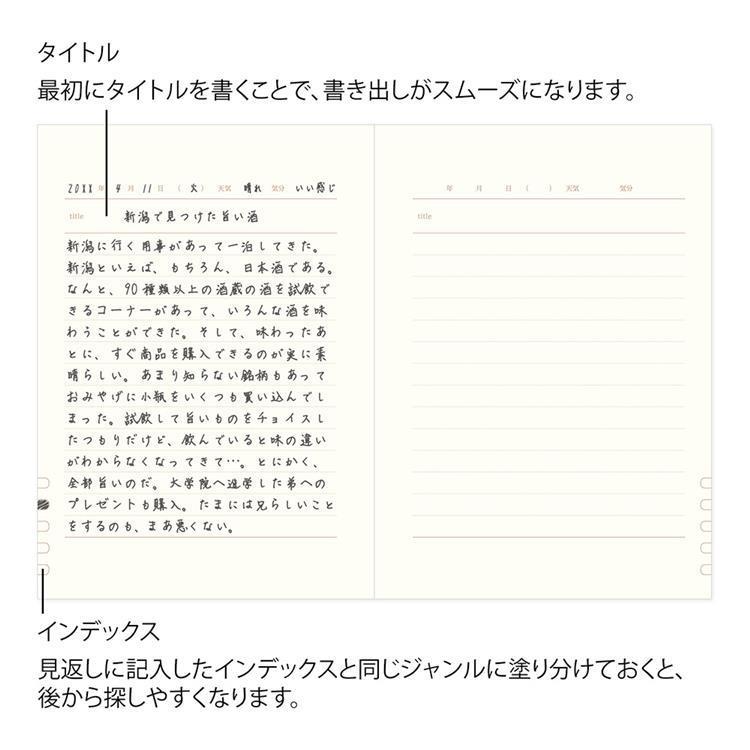 タイトル
最初にタイトルを書くことで、書き出しがスムーズになります。
20XX 年 4 月 11 日 （ 火 ） 天気 晴れ 気分 いい感じ
title 新潟で見つけた旨い酒
新潟に行く用事があって一泊してきた。
新潟といえば、もちろん、日本酒である。
なんと、90種類以上の酒蔵の酒を試飲で
きるコーナーがあって、いろんな酒を味
わうことができた。そして、味わったあ
とに、すぐ商品を購入できるのが実に素
晴らしい。あまり知らない銘柄もあって
おみやげに小瓶をいくつも買い込んでし
まった。試飲して旨いものをチョイスし
たつもりだけど、飲んでいると味の違い
がわからなくなってきて…。とにかく、
全部旨いのだ。大学院へ進学した弟への
プレゼントも購入。たまには兄らしいこと
をするのも、まあ悪くない。
年 月 日 （ ） 天気 気分
title
インデックス
見返しに記入したインデックスと同じジャンルに塗り分けておくと、
後から探しやすくなります。